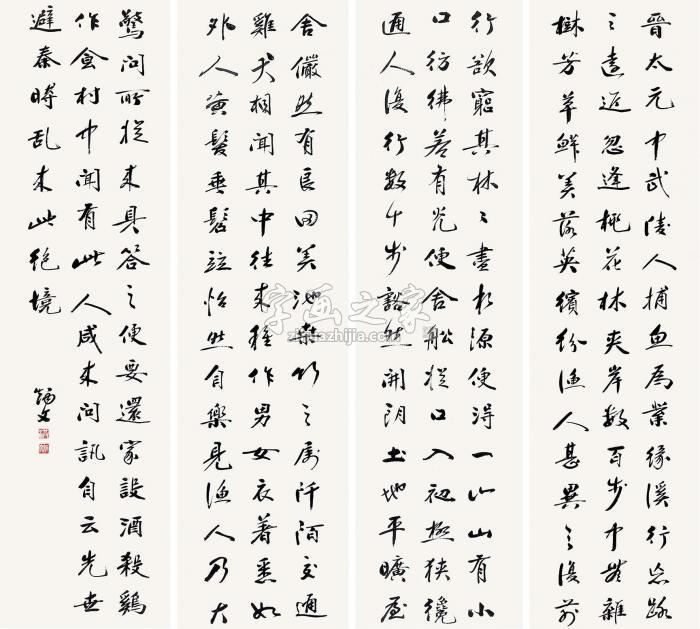 晉太元中武陵人捕魚為業緣溪行忘路
之遠近忽逢桃花林夾岸數百步中無雜
樹芳草鮮美落英繽紛漁人甚異之復前
行欲窮其林〻盡水源便得一山山有小
口彷彿若有光便舍船從口入初極狹纔
通人復行數十步豁然開朗土地平曠屋
舍儼然有良田美池桑竹之屬阡陌交通
雞犬相聞其中往來種作男女衣著悉如
外人黃髮垂髫並怡然自樂見漁人乃大
驚問所從來具答之便要還家設酒殺鷄
作食村中聞有此人咸來問訊自云先世
避秦時乱來此絕境
字画之家
zihuazhijia.com